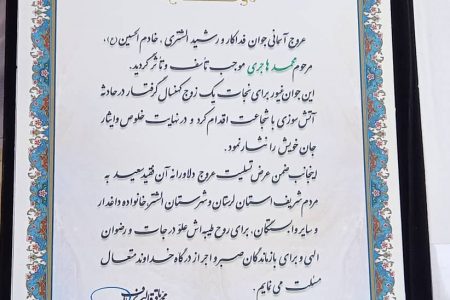 عروج آسمانی جوان فداکار و رشید الشتری، خادم الحسین (ع)،
مرحوم محمد هاجری موجب تأسف و تأثر گردید.
این جوان غیور برای نجات یک زوج کهنسال گرفتار در حادثه
آتش سوزی با شجاعت اقدام کرد و در نهایت خلوص و ایثار
جان خویش را نثار نمود.
اینجانب ضمن عرض تسلیت عروج دلاورانه آن فقید سعید به
مردم شریف استان لرستان و شهرستان الشتر، خانواده داغدار
و سایر وابستگان، برای روح نفیس اش علو درجات و رضوان
الهی و برای بازماندگان صبر و اجر از درگاه خداوند متعال
مسئلت می نمایم.